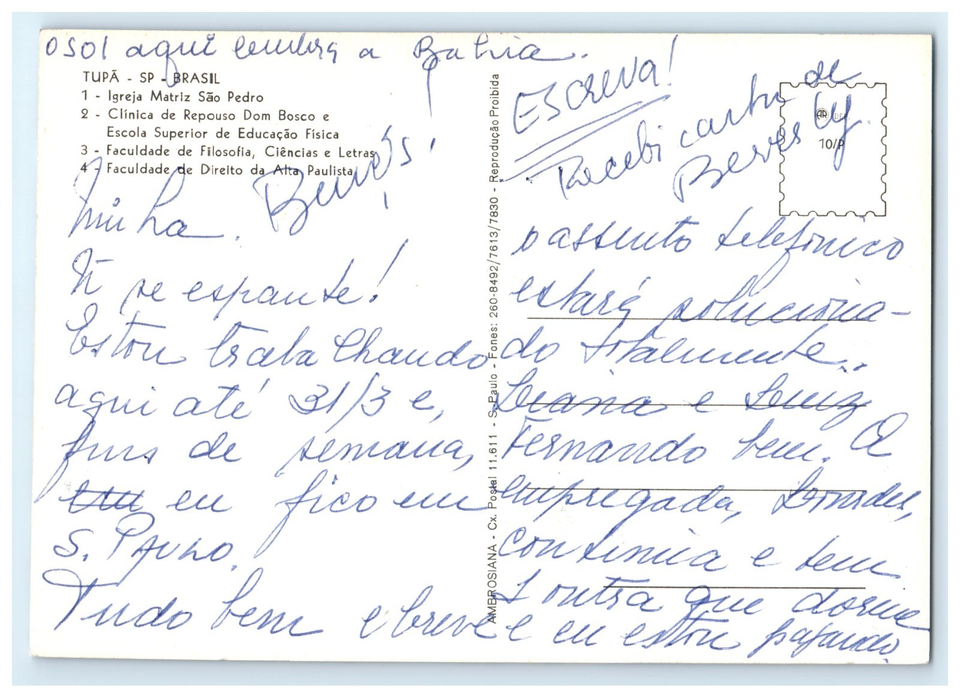 O SOL aqui lembra a Bahia.
TUPÃ - SP - BRASIL
1 - Igreja Matriz São Pedro
2 - Clínica de Repouso Dom Bosco e
Escola Superior de Educação Física
3 - Faculdade de Filosofia, Ciências e Letras
4 - Faculdade de Direito da Alta Paulista
Minha
Ñ se espante!
Estou trabalhando
aqui até 31/3 e,
fins de semana,
eu fico em
S. PAULO.
Tudo bem e breve
AMBROSIANA - Cx. Postal 11.611 - S. Paulo - Fones: 260-8492/7613/7830 - Reprodução Proibida
ESCREVA!
Recebi carta de
Beverly.
10/P
o assunto telefônico
estará soluciona-
do totalmente.
Liana e Luiz
Fernando bem. A
empregada, Lourdes,
continua e tem
1 outra que dorme
e eu estou pagando.